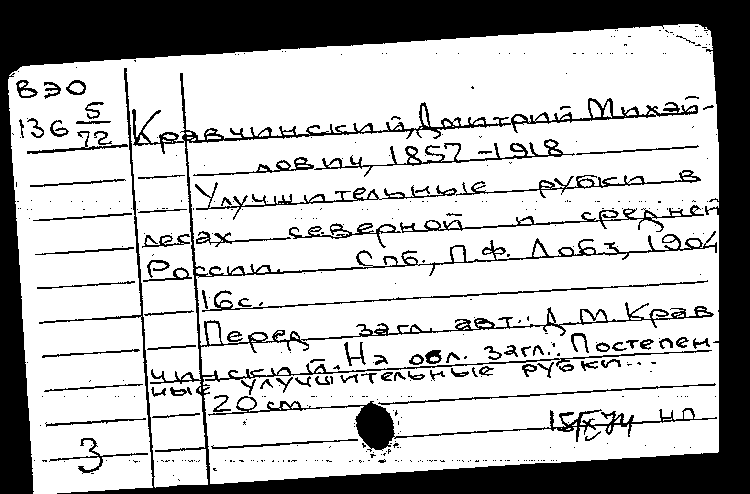 ВЭО
136 5/72 Кравчинский, Дмитрий Михай-
лович, 1857-1918
Улучшительные рубки в
лесах северной и средней
России. Спб., П.Ф. Лобз, 1904
16с.
Перед загл. авт.: Д.М. Крав
чинский. На обл. загл.: Постепен-
ные улучшительные рубки...
20 cm
15/IX 74 НП
3